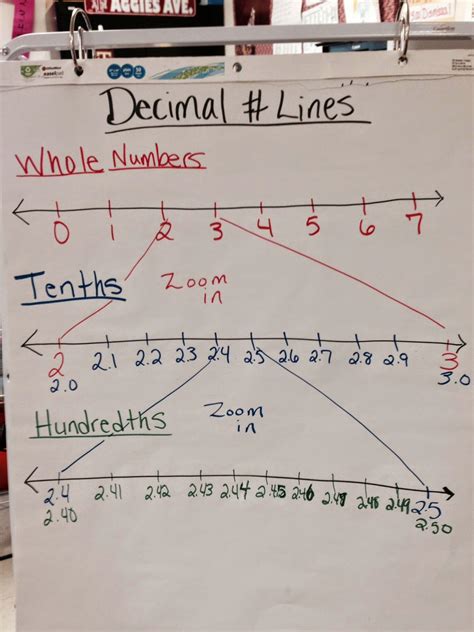 AGGIES AVE.
Decimal # Lines
Whole Numbers
0 1 2 3 4 5 6 7
Tenths
Zoom
in
2 2.1 2.2 2.3 2.4 2.5 2.6 2.7 2.8 2.9 3
2.0 3.0
Hundredths
Zoom
in
2.4 2.41 2.42 2.43 2.44 2.45 2.46 2.47 2.48 2.49 2.5
2.40 2.50